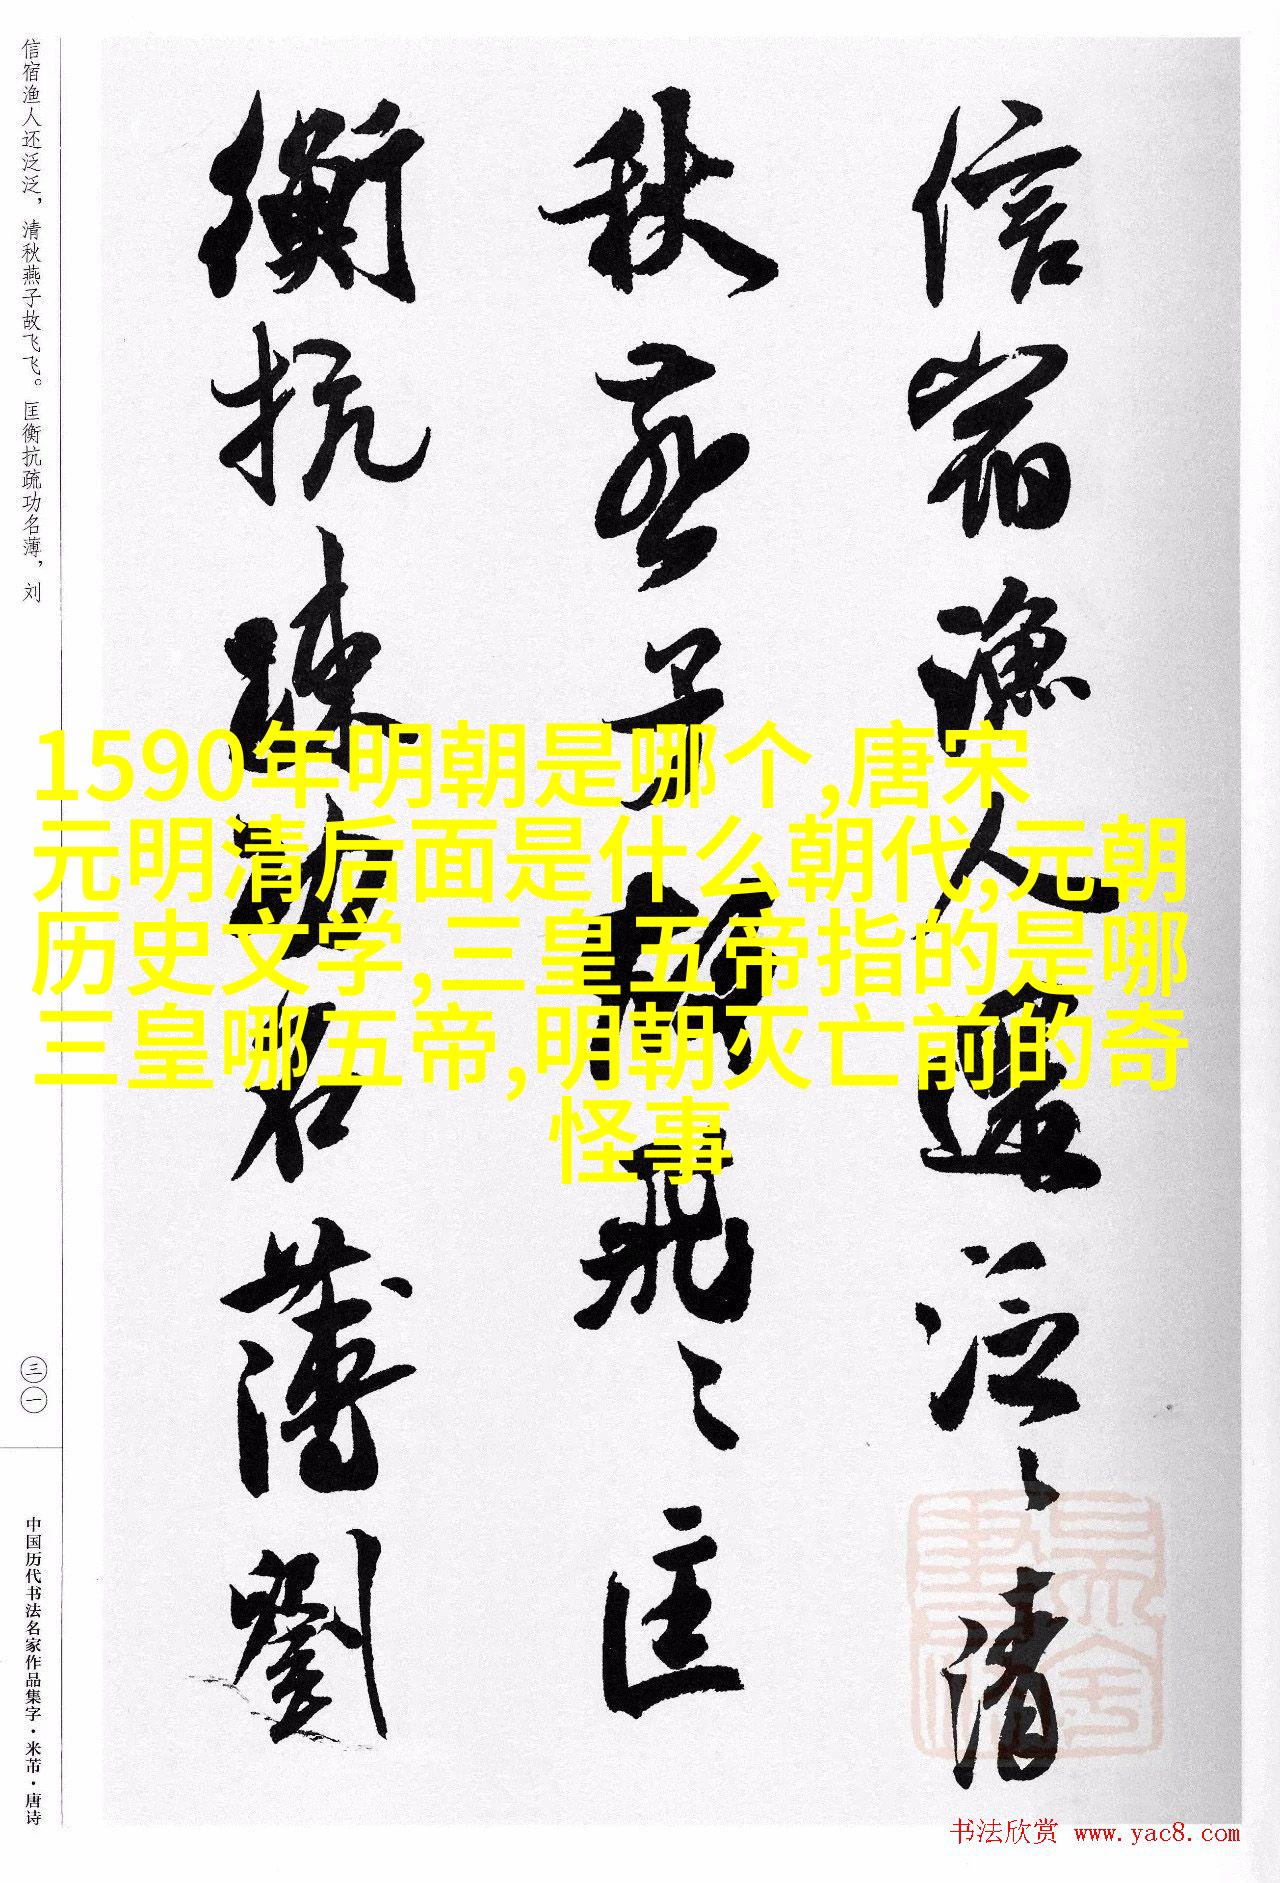 信宿渔人还泛泛，清秋燕子故飞飞。匡衡抗疏功名薄，刘
三一
中国历代书法名家作品集字·米芾·唐诗
信宿漁人還泛〻清
秋燕子故飛〻匡
衡抗疏功名薄劉
1590年明朝是哪个,唐宋
元明清后面是什么朝代,元朝
历史文学,三皇五帝指的是哪
三皇哪五帝,明朝灭亡前的奇
怪事
书法欣赏 www.yac8.com